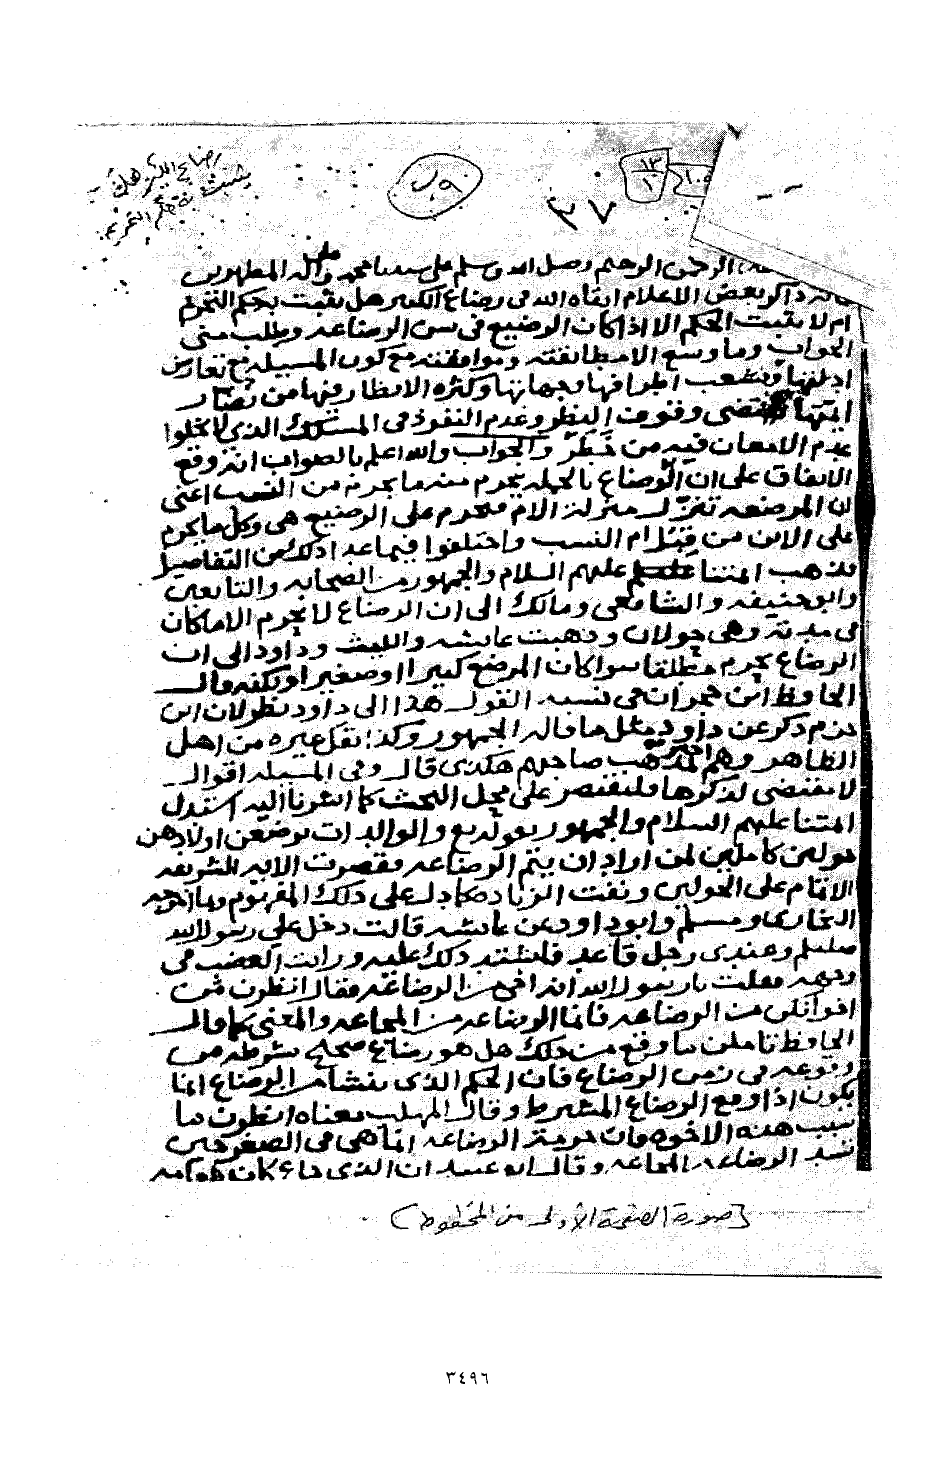 رضاع الكبير هل
يثبت به حكم التحريم
١٣
١
١٠٥
٣٧
الرحمن الرحيم وصلى الله وسلم على سيدنا محمد وعلى آله المطهرين
ذاكر بعض الاعلام ابقاه الله في رضاع الكبير هل يثبت به حكم التحريم
ام لا يثبت الحكم الا اذا كان الرضيع في سن الرضاعه وطلب مني
الجواب وما وسع الا مطابقته وموافقته مع كون المسيله مع تعارض
ادلتها وتشعب اطرافها وجهاتها وكثره الانظار فيها من
ايمتها تقتضى وقوف النظر وعدم النفوذ في المسلك الذي لا يخلوا
عدم الامعان فيه من خطر والجواب والله اعلم بالصواب انه وقع
الاتفاق على ان الرضاع بالجمله يحرم منه ما يحرم من النسب اعني
ان المرضعه تنزل منزلة الام فتحرم على الرضيع هي وكل ما يحرم
على الابن من قبل ام النسب واختلفوا فيما عدا ذلك من التفاصيل
فذهب ايمتنا عليهم السلام والجمهور من الصحابه والتابعين
وابو حنيفه والشافعي ومالك الى ان الرضاع لا يحرم الا ما كان
في مدته وهي حولان وذهبت عايشه والليث وداود الى ان
الرضاع يحرم مطلقا سوا كان المرضع كبيرا او صغيرا ولكنه قال
الحافظ ابن حجر ان في نسبه القول هذا الى داود نظر لان ابن
حزم ذكر عن داود مثل ما قاله الجمهور وكذا نقل غيره من اهل
الظاهر وهم اخبر بمذهب صاحبهم هكذى قال وفي المسيله اقوال
لا مقتضى لذكرها فلنقتصر على محل البحث كما اشرنا اليه استدل
ايمتنا عليهم السلام والجمهور بقوله تع والوالدات يرضعن اولادهن
حولين كاملين لمن اراد ان يتم الرضاعه فقصرت الايه الشريفه
الاتمام على الحولين ونفت الزياده كما دل على ذلك المفهوم وما اخرجه
البخاري ومسلم وابو داود عن عايشه قالت دخل علي رسول الله
صللم وعندى رجل قاعد فاشتد ذلك عليه ورايت الغضب في
وجهه فقلت يا رسول الله انه اخي من الرضاعه فقال انظرن من
اخوانكن من الرضاعه فانما الرضاعه من المجاعه والمعنى كما قال
الحافظ تاملن ما وقع من ذلك هل هو رضاع صحيح بشرطه من
وقوعه في زمن الرضاع فان الحكم الذى ينشا من الرضاع انما
يكون اذا وقع الرضاع المشترط وقال المهلب معناه انظرن ما
سبب هذه الاخوه فان حرمة الرضاعه انما هي في الصغر حين
تسد الرضاعه المجاعه وقال ابو عبيد ان الذى جاع كان طعامه
[صورة الصفحة الأولى من المخطوط]
٣٤٩٦